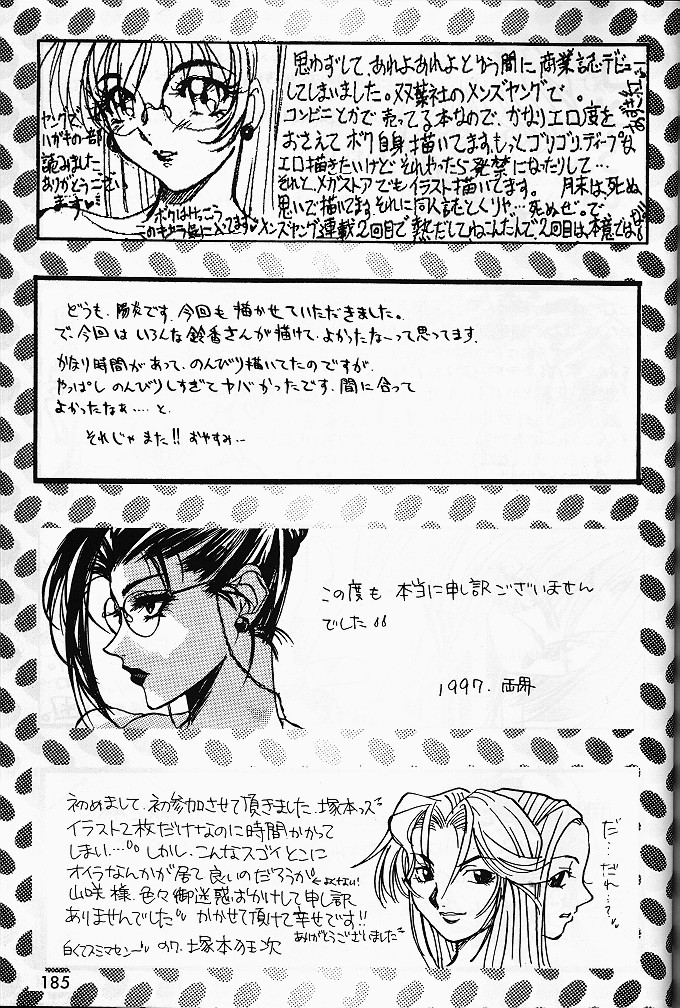 思わずして、あれよあれよという間に商業誌デビュー
してしまいました。双葉社のメンズヤングで。
コンビニとかで売ってる本なので、かなりエロ度を
おさえてボク自身描いてます。もっとゴリゴリディープな
エロ描きたいけど それやったら発禁になったりして…
それと、メガストアでもイラスト描いてます。月末は死ぬ
思いで描いてます。それに同人誌とくりゃ…死ぬぜ。で
メンズヤング連載2回目で熱だしてねこんだんで、2回目は、本意では
ヤングで、
ハガキの一部
読みました、
ありがとうござい
ます♡
ボクはけっこう
このキャラ気に入ってます♡
どうも、陽炎です。今回も描かせていただきました。
で、今回はいろんな鈴香さんが描けて、よかったなーって思ってます。
かなり時間があって、のんびり描いてたのですが、
やっぱし のんびりしすぎてヤバかったです。間に合って
よかったなぁ…. と.
それじゃまた!! おやすみ…
この度も 本当に申し訳ございません
でした
1997. 両界
初めまして、初参加させて頂きました、塚本っス
イラスト2枚だけなのに時間かかって
しまい…。しかし、こんなスゴイとこに
オイラなんかが居て良いのだろうか ←よくない!
山咲様、色々御迷惑ばかけして申し訳
ありませんでした かかせて頂けて幸せです!!
ありがとうございました
白くてスミマセン 塚本 次
だ…だれ…?
185